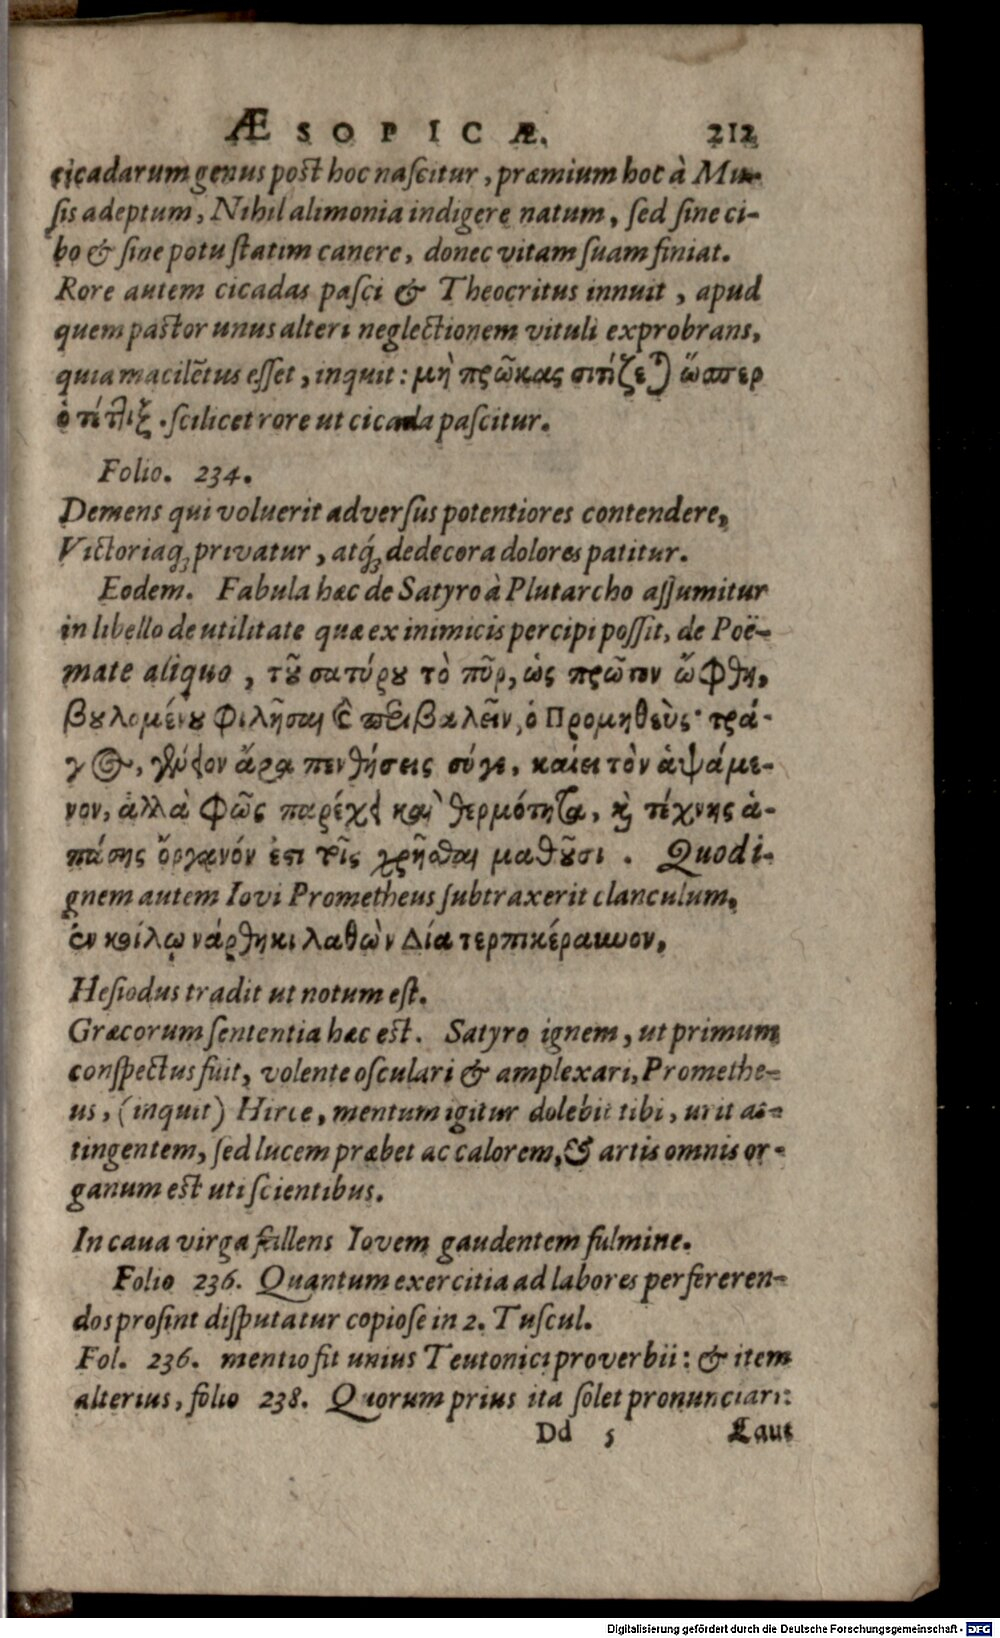 ÆSOPICÆ. 212
cicadarum genus post hoc nascitur, præmium hoc à Mu-
sis adeptum, Nihil alimonia indigere natum, sed sine ci-
bo & sine potu statim canere, donec vitam suam finiat.
Rore autem cicadas pasci & Theocritus innuit, apud
quem pastor unus alteri neglectionem vituli exprobrans,
quia macilētus esset, inquit: μὴ πρῶκας σιτίζεται ὥσπερ
ὁ τέττιξ. scilicet rore ut cicada pascitur.
Folio. 234.
Demens qui voluerit adversus potentiores contendere,
Victoriaq; privatur, atq; dedecora dolores patitur.
Eodem. Fabula hæc de Satyro à Plutarcho assumitur
in libello de utilitate quæ ex inimicis percipi possit, de Poë-
mate aliquo, τοῦ σατύρου τὸ πῦρ, ὡς πρῶτον ὤφθη,
βουλομένου φιλῆσαι καὶ περιβαλεῖν, ὁ Προμηθεὺς· τρά-
γος, γένειον ἄρα πενθήσεις σύγε, καίει τὸν ἁψάμε-
νον, ἀλλὰ φῶς παρέχει καὶ θερμότητα, καὶ τέχνης ἁ-
πάσης ὄργανόν ἐστι τοῖς χρῆσθαι μαθοῦσι. Quod i-
gnem autem Iovi Prometheus subtraxerit clanculum,
ἐν κοίλῳ νάρθηκι λαθὼν Δία τερπικέραυνον,
Hesiodus tradit ut notum est.
Græcorum sententia hæc est. Satyro ignem, ut primum
conspectus fuit, volente osculari & amplexari, Promethe-
us, (inquit) Hirce, mentum igitur dolebit tibi, urit at-
tingentem, sed lucem præbet ac calorem, & artis omnis or-
ganum est uti scientibus.
In caua virga fallens Iovem gaudentem fulmine.
Folio 236. Quantum exercitia ad labores perferen-
dos prosint disputatur copiose in 2. Tuscul.
Fol. 236. mentio fit unius Teutonici proverbii: & item
alterius, folio 238. Quorum prius ita solet pronunciari:
Dd 5 Laut
Digitalisierung gefördert durch die Deutsche Forschungsgemeinschaft - DFG